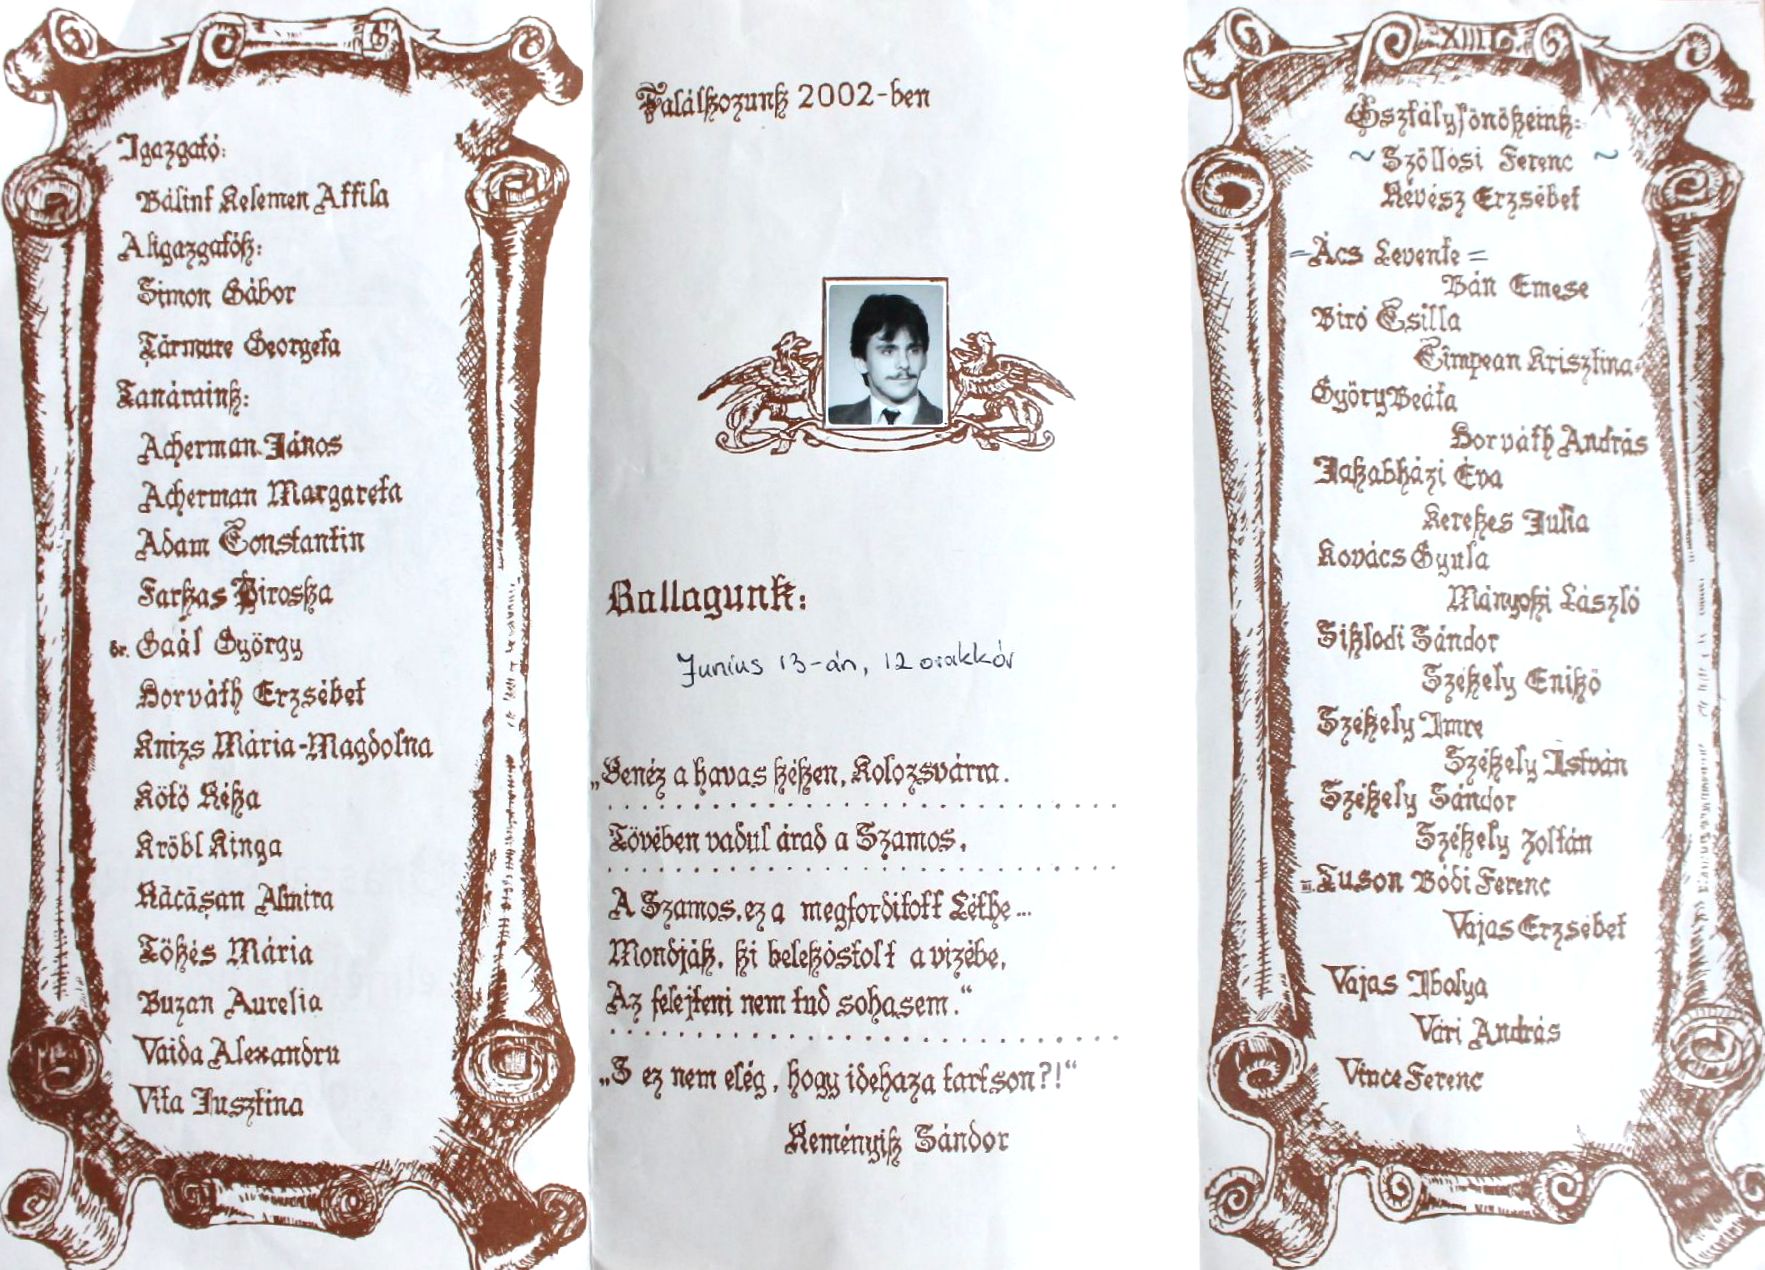 Igazgató:
Bálint Kelemen Attila
Aligazgatók:
Simon Gábor
Tărmure Georgeta
Tanáraink:
Acherman János
Acherman Margareta
Adam Constantin
Farkas Piroska
dr. Gaál György
Horváth Erzsébet
Knizs Mária-Magdolna
Kötő Réka
Kröbl Kinga
Răcăşan Almira
Tőkés Mária
Buzan Aurelia
Vaida Alexandru
Vita Jusztina
Találkozunk 2002-ben
Ballagunk:
Junius 13-án, 12 orakkór
„Benéz a havas kéken, Kolozsvárra.
Tövében vadul árad a Szamos,
A Szamos, ez a megfordított Léthe...
Mondják, ki belekóstolt a vizébe,
Az felejteni nem tud sohasem.“
„S ez nem elég, hogy idehaza tartson?!“
Reményik Sándor
XIII.G.
Osztályfőnökeink:
~ Szöllősi Ferenc ~
Révész Erzsébet
=Ács Levente=
Bán Emese
Biró Csilla
Cîmpean Krisztina
Győry Beáta
Horváth András
Jakabházi Éva
Kerekes Julia
Kovács Gyula
Mányoki László
Siklodi Sándor
Székely Enikő
Székely Imre
Székely István
Székely Sándor
Székely Zoltán
Tuson Bódi Ferenc
Vajas Erzsébet
Vajas Ibolya
Vári András
Vince Ferenc